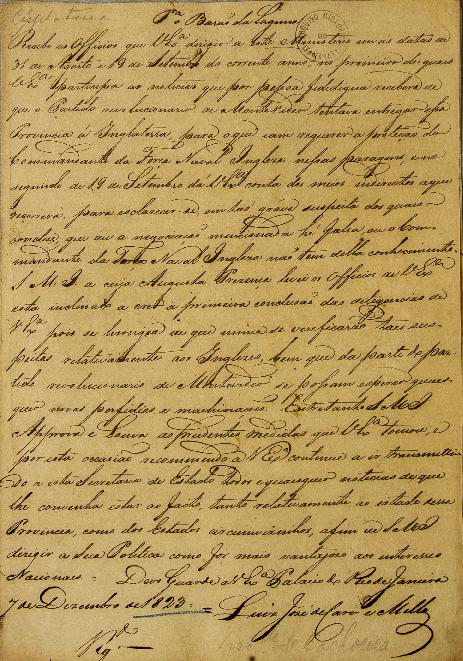 Cisplatina
Pª o Barão da Laguna
Recebi os Officios que V Exª dirigio a este Ministerio em as datas de
31 de Agosto e 19 de Setembro do corrente anno, no primeiro do quaes
V Exª participa as noticias que por pessoa fidedigna recebera de
que o Partido revolucionario de Monte Video tentava entregar essa
Provincia á Inglaterra, para o que iam requerer a proteção do
Commandante da Força Naval Ingleza nessas paragens, e no
segundo de 19 de Setembro dá V Exª conta dos meios indirectos a que
recorrera, para esclarecer-se em tão grave suspeita dos quaes
conclue, que ou a negociação mencionada he falsa, ou o Com-
mandante da Força Naval Ingleza não tem della conhecimento.
S M I a cuja Augusta Presença levei os Officios de V Exª
está inclinado a crer a primeira conclusão das diligencias de
V Exª pois se lisongea de que nunca se verificarão taes sus-
peitas relativamente aos Inglezes, bem que da parte do par-
tido revolucionario de Montevideo se possam esperar quaes-
quer novas perfidias e machinações. Entretanto S M I
Approva e Louva as prudentes medidas que V Exª tomou, e
por esta occasião recommendo a V Exª continue a ir transmittin-
do a esta Secretaria de Estado todas e quaesquer noticias de que
lhe convenha estar ao facto, tanto relativamente ao estado dessa
Provincia, como dos Estados circumvizinhos, afim de S M I
dirigir a Sua Politica como for mais vantajoso aos interesses
Nacionaes. Deos Guarde a V Exª Palacio do Rio de Janeiro
7 de Dezembro de 1823. = Luiz José de Carvº e Mello